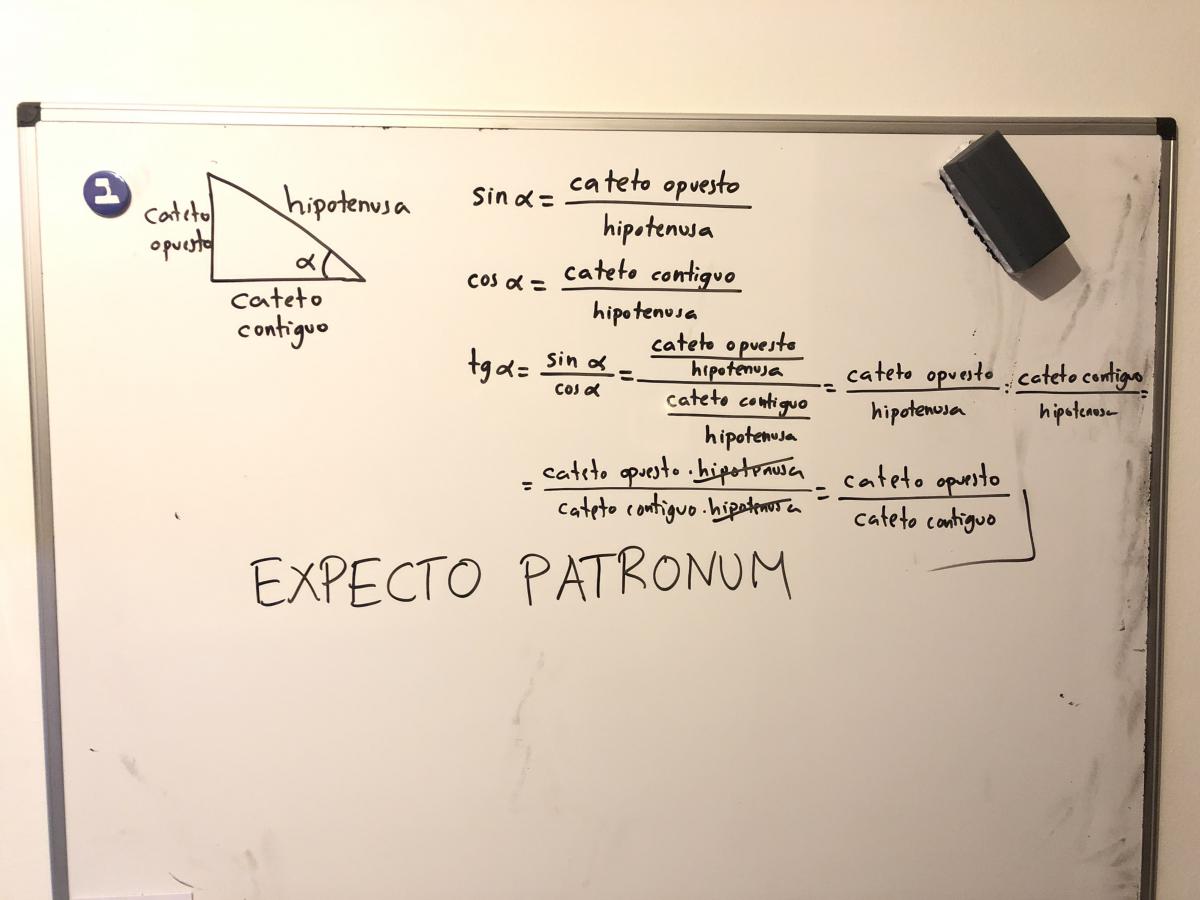 1
cateto
opuesto
hipotenusa
α
cateto
contiguo
sin α = cateto opuesto / hipotenusa
cos α = cateto contiguo / hipotenusa
tg α = sin α / cos α = (cateto opuesto / hipotenusa) / (cateto contiguo / hipotenusa) = cateto opuesto / hipotenusa : cateto contiguo / hipotenusa =
= cateto opuesto · hipotenusa / cateto contiguo · hipotenusa = cateto opuesto / cateto contiguo
EXPECTO PATRONUM